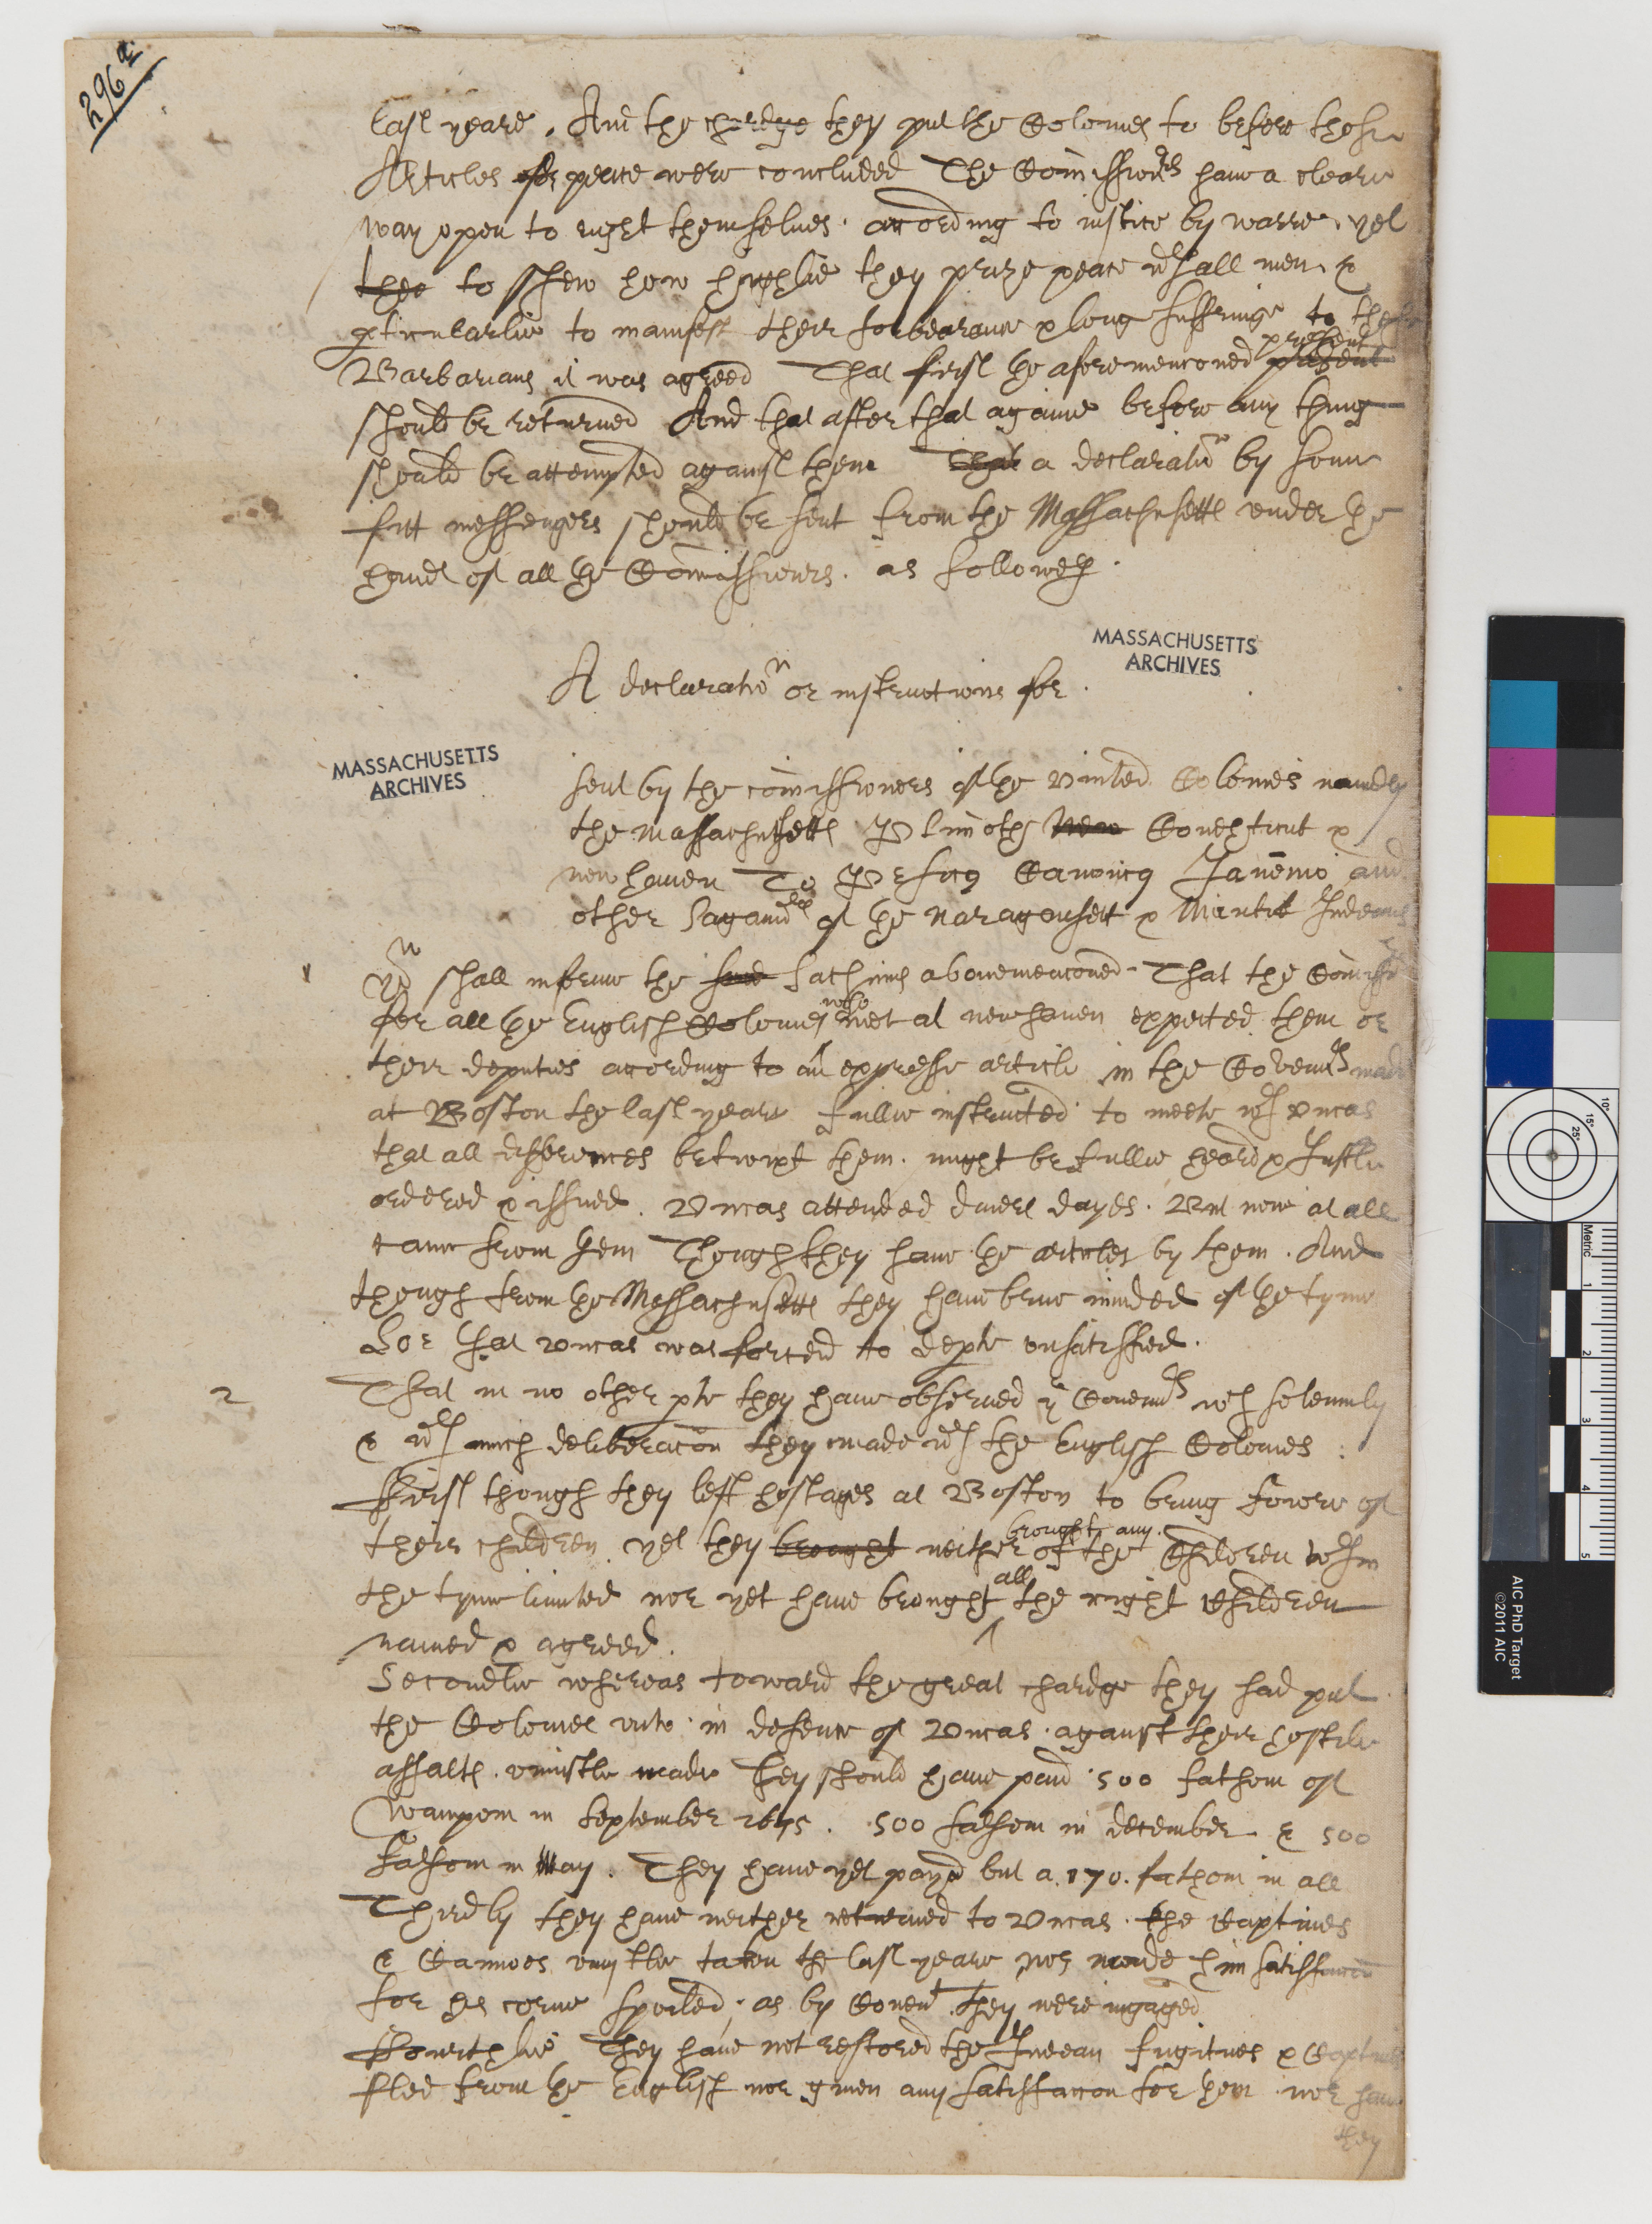 296a
last yeare. And the chardge they put the Colonies to before these
Articles of peace were concluded The Comissionrs haue a cleare
way open to right themselues. acording to iustice by warre, yet
thee to shew how highlie they prize peace wth all men &
pticularlie to manifest their forbearance & long suffringe to these
present
Barbarians it was agreed That first ye aforemencioned present
should be returned And that after that againe before any thing
should be attempted against them That a declaratio n by some
fitt messengers should be sent from the Massachusetts vnder ye
hands of all ye Comissioners. as followeth.
MASSACHUSETTS
ARCHIVES
A declaratio n or instructions for
MASSACHUSETTS
ARCHIVES
sent by the comissioners of ye vnited Colonies namely
the Massachusetts Plimoth New Conecticut &
new hauen To Pesicus Canonicus Janemo and
other Sagamrs of ye Naragansett & Niantick Indeans
1 You shall informe the said sachims abouemencioned. That the Comissrs
who
for all ye English Colonies met at new hauen expected them or
their deputies acording to an expresse article in the Covenants made
at Boston the last yeare fullie instructed to meete wth vncas
that all differences betwixt them. might be fullie heard & Justlie
ordered & issued. Vncas attended diuers dayes. But none at all
came from them Though they haue ye articles by them. And
though from ye Massachusetts they haue bene minded of ye tyme
Soe that vncas was forced to depte vnsatisfied.
2 That in no other pte they haue observed ye Couenants wch solemnly
& wth much deliberacon they made wth the English Colonies:
First though they left hostages at Boston to bring fowre of
brought any.
their children yet they brought neither of the Children wthin
all
the tyme limited nor yet haue brought the right Children
named & agreed.
Secondlie whereas toward the great chardge they had put
the Colonies vnto in defence of Vncas. against their hostile
assalts. vniustlie made They should haue paid 500 fathom of
Wampom in September 1645. 500 fathom in december & 500
fathom in May. They haue yet payd but a. 170. fathom in all
Thirdly they haue neither returned to Vncas. the Captiues
& Cannoes vniustlie taken the last yeare nor made him satisfaccon
for his corne spoiled; as by Couent. they were ingaged
Fourthlie They haue not restored the Indean fugitiues & Captiues
fled from ye English nor giuen any satisfaccon for them nor haue
they